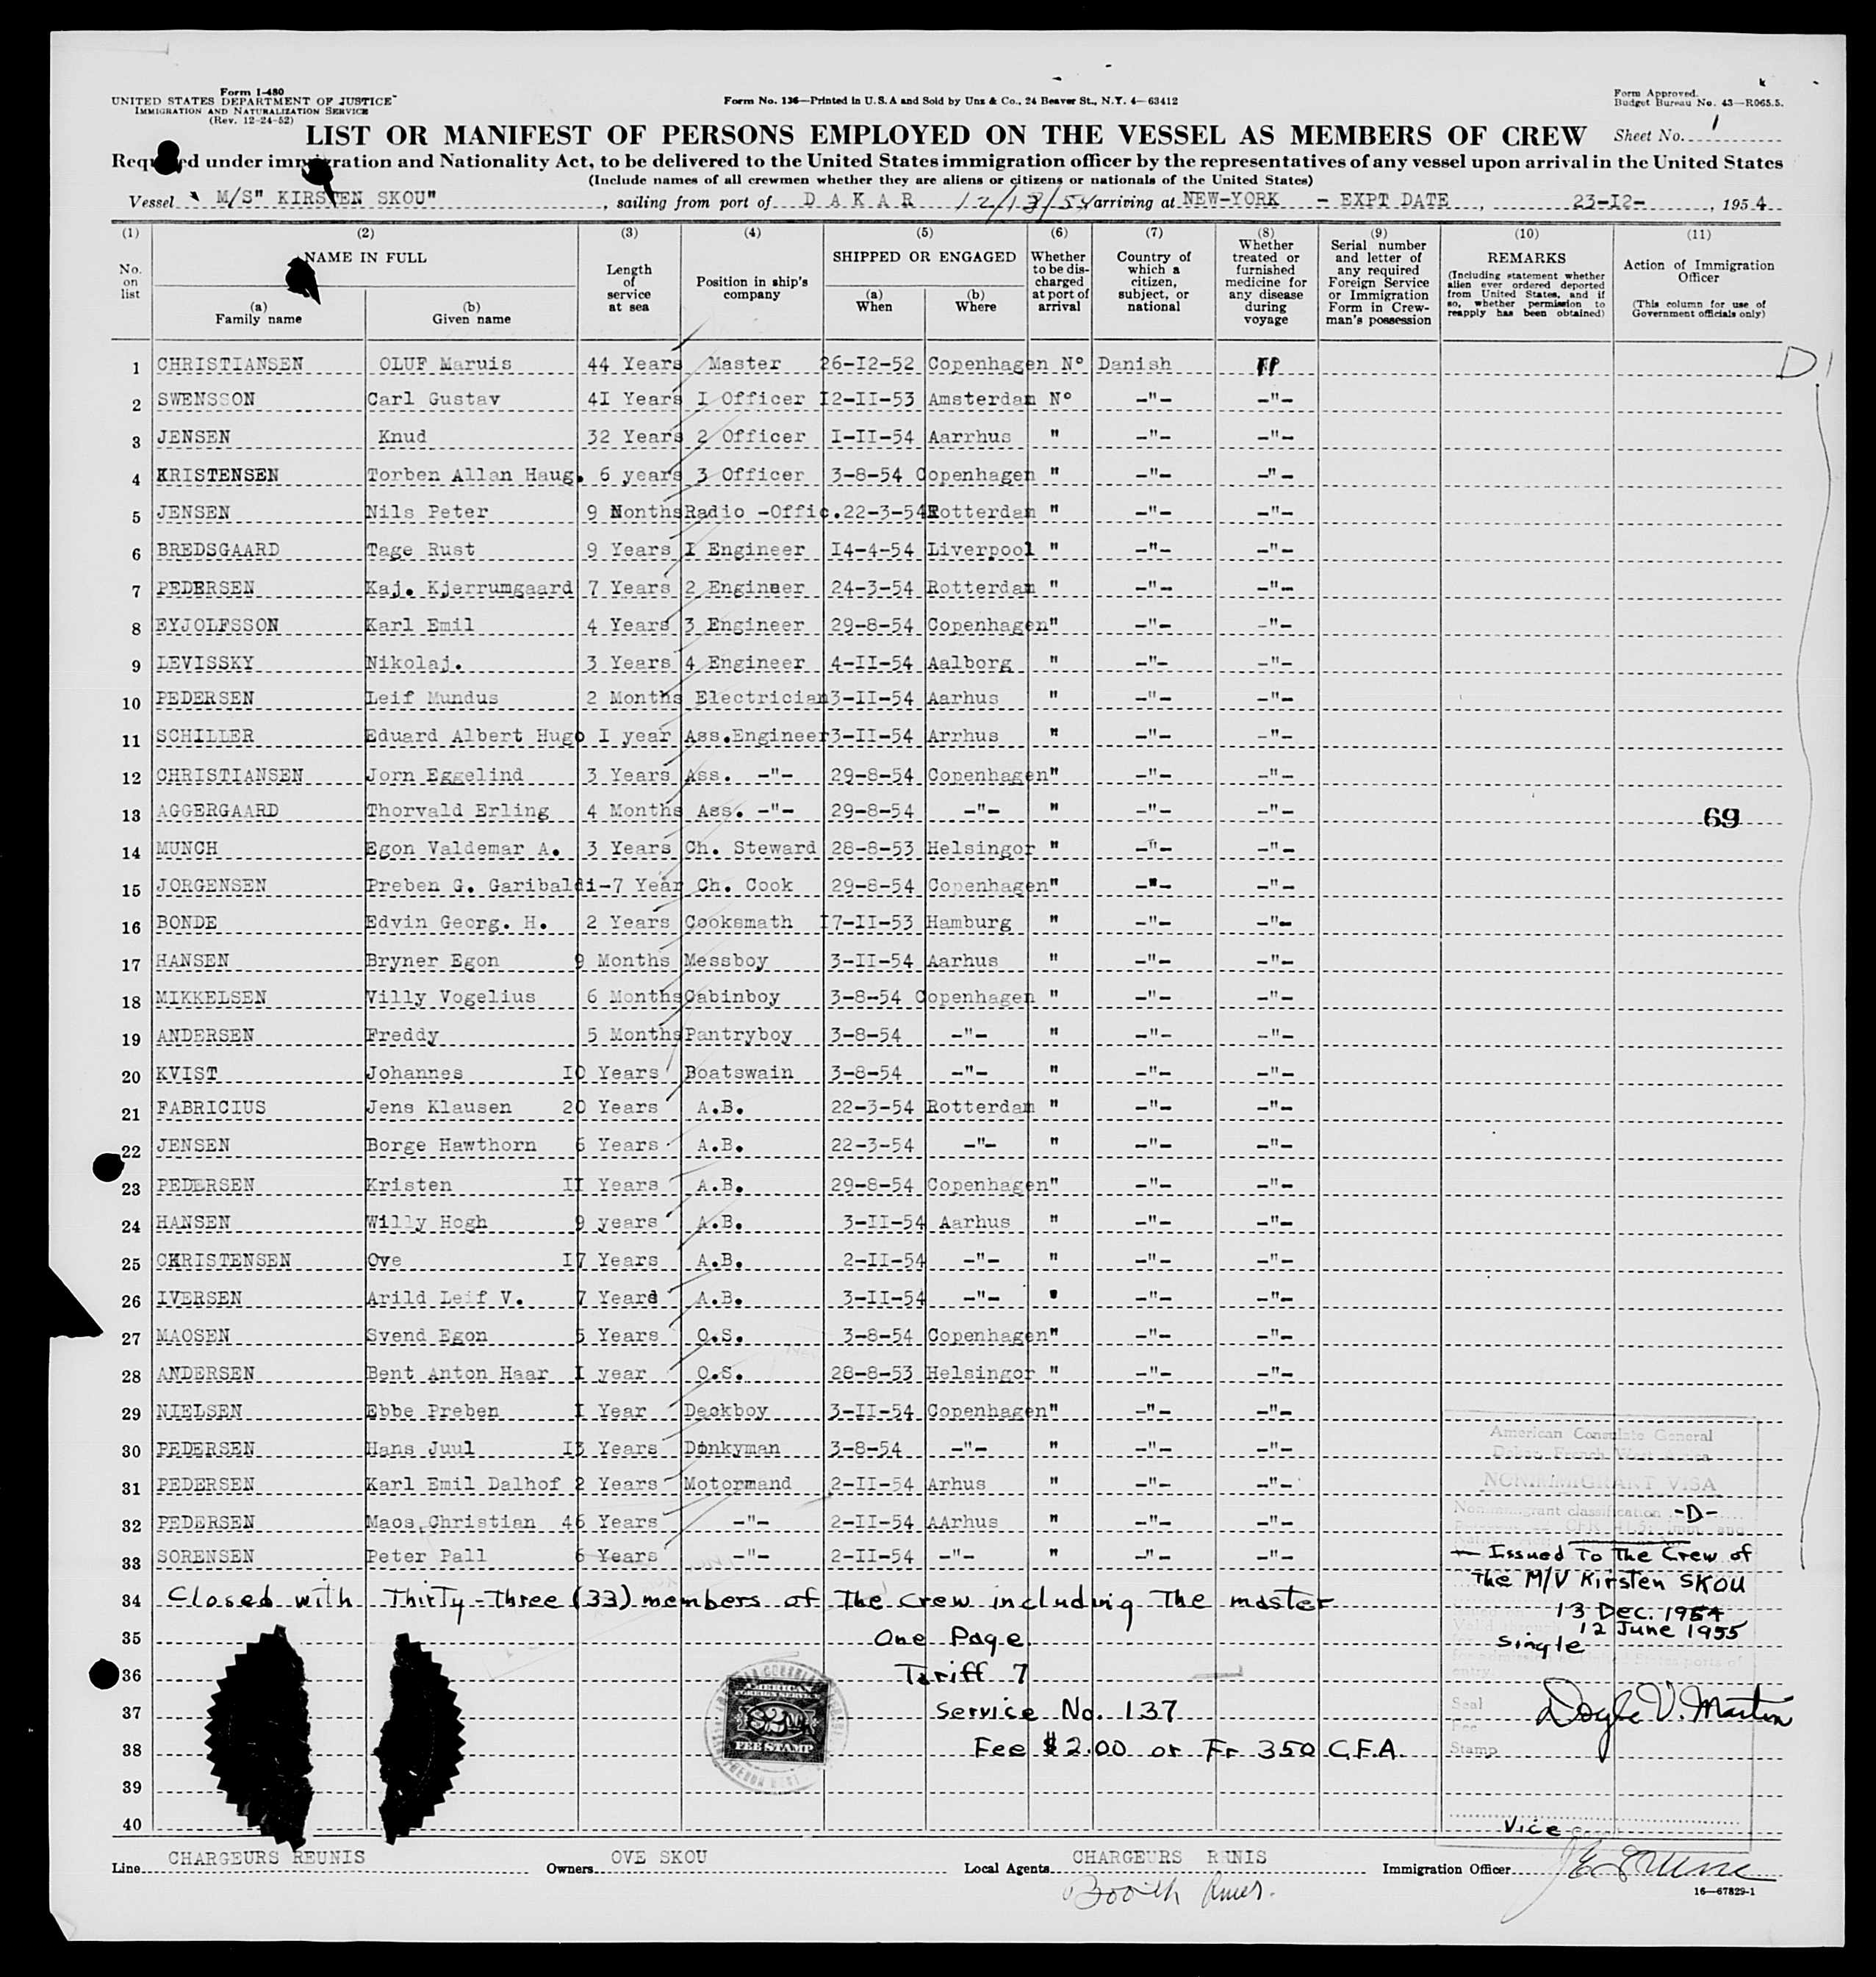 Form I-480
UNITED STATES DEPARTMENT OF JUSTICE
IMMIGRATION AND NATURALIZATION SERVICE
(Rev. 12-24-52)
Form No. 136—Printed in U.S.A and Sold by Unz & Co., 24 Beaver St., N.Y. 4—63412
Form Approved.
Budget Bureau No. 43—R065.5.
LIST OR MANIFEST OF PERSONS EMPLOYED ON THE VESSEL AS MEMBERS OF CREW
Sheet No. 1
Required under immigration and Nationality Act, to be delivered to the United States immigration officer by the representatives of any vessel upon arrival in the United States
(Include names of all crewmen whether they are aliens or citizens or nationals of the United States)
Vessel M/S" KIRSTEN SKOU" , sailing from port of D A K A R 12/13/54 arriving at NEW-YORK - EXPT DATE , 23-I2- , 1954
(1) (2) (3) (4) (5) (6) (7) (8) (9) (10) (11)
No. on list
NAME IN FULL
(a) Family name
(b) Given name
Length of service at sea
Position in ship's company
SHIPPED OR ENGAGED
(a) When
(b) Where
Whether to be discharged at port of arrival
Country of which a citizen, subject, or national
Whether treated or furnished medicine for any disease during voyage
Serial number and letter of any required Foreign Service or Immigration Form in Crewman's possession
REMARKS
(Including statement whether alien ever ordered deported from United States, and if so, whether permission to reapply has been obtained)
Action of Immigration Officer
(This column for use of Government officials only)
1 CHRISTIANSEN OLUF Maruis 44 Years Master 26-I2-52 Copenhagen Nº Danish D
2 SWENSSON Carl Gustav 4I Years I Officer I2-II-53 Amsterdam Nº -"- -"-
3 JENSEN Knud 32 Years 2 Officer I-II-54 Aarrhus " -"- -"-
4 KRISTENSEN Torben Allan Haug. 6 years 3 Officer 3-8-54 Copenhagen " -"- -"-
5 JENSEN Nils Peter 9 Months Radio -Offic. 22-3-54 Rotterdam " -"- -"-
6 BREDSGAARD Tage Rust 9 Years I Engineer I4-4-54 Liverpool " -"- -"-
7 PEDERSEN Kaj. Kjerrumgaard 7 Years 2 Engineer 24-3-54 Rotterdam " -"- -"-
8 EYJOLFSSON Karl Emil 4 Years 3 Engineer 29-8-54 Copenhagen " -"- -"-
9 LEVISSKY Nikolaj. 3 Years 4 Engineer 4-II-54 Aalborg " -"- -"-
10 PEDERSEN Leif Mundus 2 Months Electrician 3-II-54 Aarhus " -"- -"-
11 SCHILLER Eduard Albert Hugo I year Ass.Engineer 3-II-54 Arrhus " -"- -"-
12 CHRISTIANSEN Jorn Eggelind 3 Years Ass. -"- 29-8-54 Copenhagen " -"- -"-
13 AGGERGAARD Thorvald Erling 4 Months Ass. -"- 29-8-54 -"- " -"- -"- 69
14 MUNCH Egon Valdemar A. 3 Years Ch. Steward 28-8-53 Helsingor " -"- -"-
15 JORGENSEN Preben G. Garibaldi-7 Year Ch. Cook 29-8-54 Copenhagen " -"- -"-
16 BONDE Edvin Georg. H. 2 Years Cooksmath I7-II-53 Hamburg " -"- -"-
17 HANSEN Bryner Egon 9 Months Messboy 3-II-54 Aarhus " -"- -"-
18 MIKKELSEN Villy Vogelius 6 Months Cabinboy 3-8-54 Copenhagen " -"- -"-
19 ANDERSEN Freddy 5 Months Pantryboy 3-8-54 -"- " -"- -"-
20 KVIST Johannes I0 Years Boatswain 3-8-54 -"- " -"- -"-
21 FABRICIUS Jens Klausen 20 Years A.B. 22-3-54 Rotterdam " -"- -"-
22 JENSEN Borge Hawthorn 6 Years A.B. 22-3-54 -"- " -"- -"-
23 PEDERSEN Kristen II Years A.B. 29-8-54 Copenhagen " -"- -"-
24 HANSEN Willy Hogh 9 years A.B. 3-II-54 Aarhus " -"- -"-
25 CHRISTENSEN Ove I7 Years A.B. 2-II-54 -"- " -"- -"-
26 IVERSEN Arild Leif V. 7 Years A.B. 3-II-54 -"- " -"- -"-
27 MAOSEN Svend Egon 5 Years O.S. 3-8-54 Copenhagen " -"- -"-
28 ANDERSEN Bent Anton Haar I year O.S. 28-8-53 Helsingor " -"- -"-
29 NIELSEN Ebbe Preben I Year Deckboy 3-II-54 Copenhagen " -"- -"-
30 PEDERSEN Hans Juul I3 Years Donkyman 3-8-54 -"- " -"- -"-
31 PEDERSEN Karl Emil Dalhof 2 Years Motormand 2-II-54 Arhus " -"- -"-
32 PEDERSEN Maos Christian 46 Years -"- 2-II-54 AArhus " -"- -"-
33 SORENSEN Peter Pall 6 Years -"- 2-II-54 -"- " -"- -"-
American Consulate General
Dakar, French West Africa
NONIMMIGRANT VISA
Nonimmigrant classification -D-
Issued To The Crew of
The M/V Kirsten SKOU
13 Dec. 1954
12 June 1955
Single
Seal
Fee
Stamp
Doyle V. Martin
Vice
34 Closed with Thirty-Three (33) members of The Crew including The master
35 One Page
36 Tariff 7
37 Service No. 137
38 Fee $2.00 or Fr 350 C.F.A.
39
40
AMERICAN
FOREIGN SERVICE
FEE STAMP
Line CHARGEURS REUNIS Owners OVE SKOU Local Agents CHARGEURS RUNIS Immigration Officer
16—67829-1